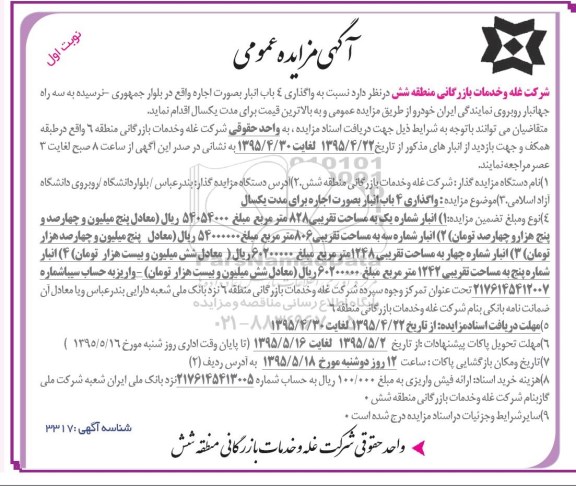 آگهی مزایده عمومی
نوبت اول
شرکت غله وخدمات بازرگانی منطقه شش درنظر دارد نسبت به واگذاری ٤ باب انبار بصورت اجاره واقع در بلوار جمهوری -نرسیده به سه راه
جهانبار روبروی نمایندگی ایران خودرو از طریق مزایده عمومی و به بالاترین قیمت برای مدت یکسال اقدام نماید.
متقاضیان می توانند باتوجه به شرایط ذیل جهت دریافت اسناد مزایده ، به واحد حقوقی شرکت غله وخدمات بازرگانی منطقه ٦ واقع درطبقه
همکف و جهت بازدید از انبار های مذکور از تاریخ ١٣٩٥/٤/٢٢ لغایت ١٣٩٥/٤/٣٠ به نشانی در صدر این آگهی از ساعت ٨ صبح لغایت ٣
عصر مراجعه نمایند.
١)نام دستگاه مزایده گذار : شرکت غله وخدمات بازرگانی منطقه شش.٢)آدرس دستگاه مزایده گذار:بندرعباس /بلواردانشگاه /روبروی دانشگاه
آزاد اسلامی.٣)موضوع مزایده : واگذاری ٤ باب انبار بصورت اجاره برای مدت یکسال
٤)نوع ومبلغ تضمین مزایده:١) انبار شماره یک به مساحت تقریبی٨٢٨ متر مربع مبلغ ٥٤٠٥٤٠٠٠ ریال (معادل پنج میلیون و چهارصد و
پنج هزار و چهارصد تومان) ٢) انبار شماره سه به مساحت تقریبی٨٠٦متر مربع مبلغ ٥٤٠٠٠٠٠٠ ریال (معادل پنج میلیون و چهارصد هزار
تومان) ٣) انبار شماره چهار به مساحت تقریبی ١٢٤٨متر مربع مبلغ ٦٠٢٠٠٠٠٠ ریال ( معادل شش میلیون و بیست هزار تومان) ٤) انبار
شماره پنج به مساحت تقریبی ١٢٤٢ متر مربع مبلغ ٦٠٢٠٠٠٠٠ ریال (معادل شش میلیون و بیست هزار تومان) -واریز به حساب سیبا شماره
٢١٧٦١٤٥٤١٢٠٠٧ تحت عنوان تمرکز وجوه سپرده شرکت غله وخدمات بازرگانی منطقه ٦ نزد بانک ملی شعبه دارایی بندرعباس ویا معادل آن
ضمانت نامه بانکی بنام شرکت غله وخدمات بازرگانی منطقه ٦
٥)مهلت دریافت اسنادمزایده: از تاریخ ١٣٩٥/٤/٢٢ لغایت ١٣٩٥/٤/٣٠
٦)مهلت تحویل پاکات پیشنهادات :از تاریخ ١٣٩٥/٥/٢ لغایت ١٣٩٥/٥/١٦ (تا پایان وقت اداری روز شنبه مورخ ١٣٩٥/٥/١٦ )
٧)تاریخ ومکان بازگشایی پاکات : ساعت ١٢ روز دوشنبه مورخ ١٣٩٥/٥/١٨ به آدرس ردیف (٢)
٨)هزینه خرید اسناد: ارائه فیش واریزی به مبلغ ١٠٠/٠٠٠ ریال به حساب شماره ٢١٧٦١٤٥٤١٣٠٠٥نزد بانک ملی ایران شعبه شرکت ملی
گازبنام شرکت غله وخدمات بازرگانی منطقه شش ٠
٩)سایر شرایط وجزئیات دراسناد مزایده درج شده است ٠
شناسه آگهی : ٣٣١٧
واحد حقوقی شرکت غله وخدمات بازرگانی منطقه شش